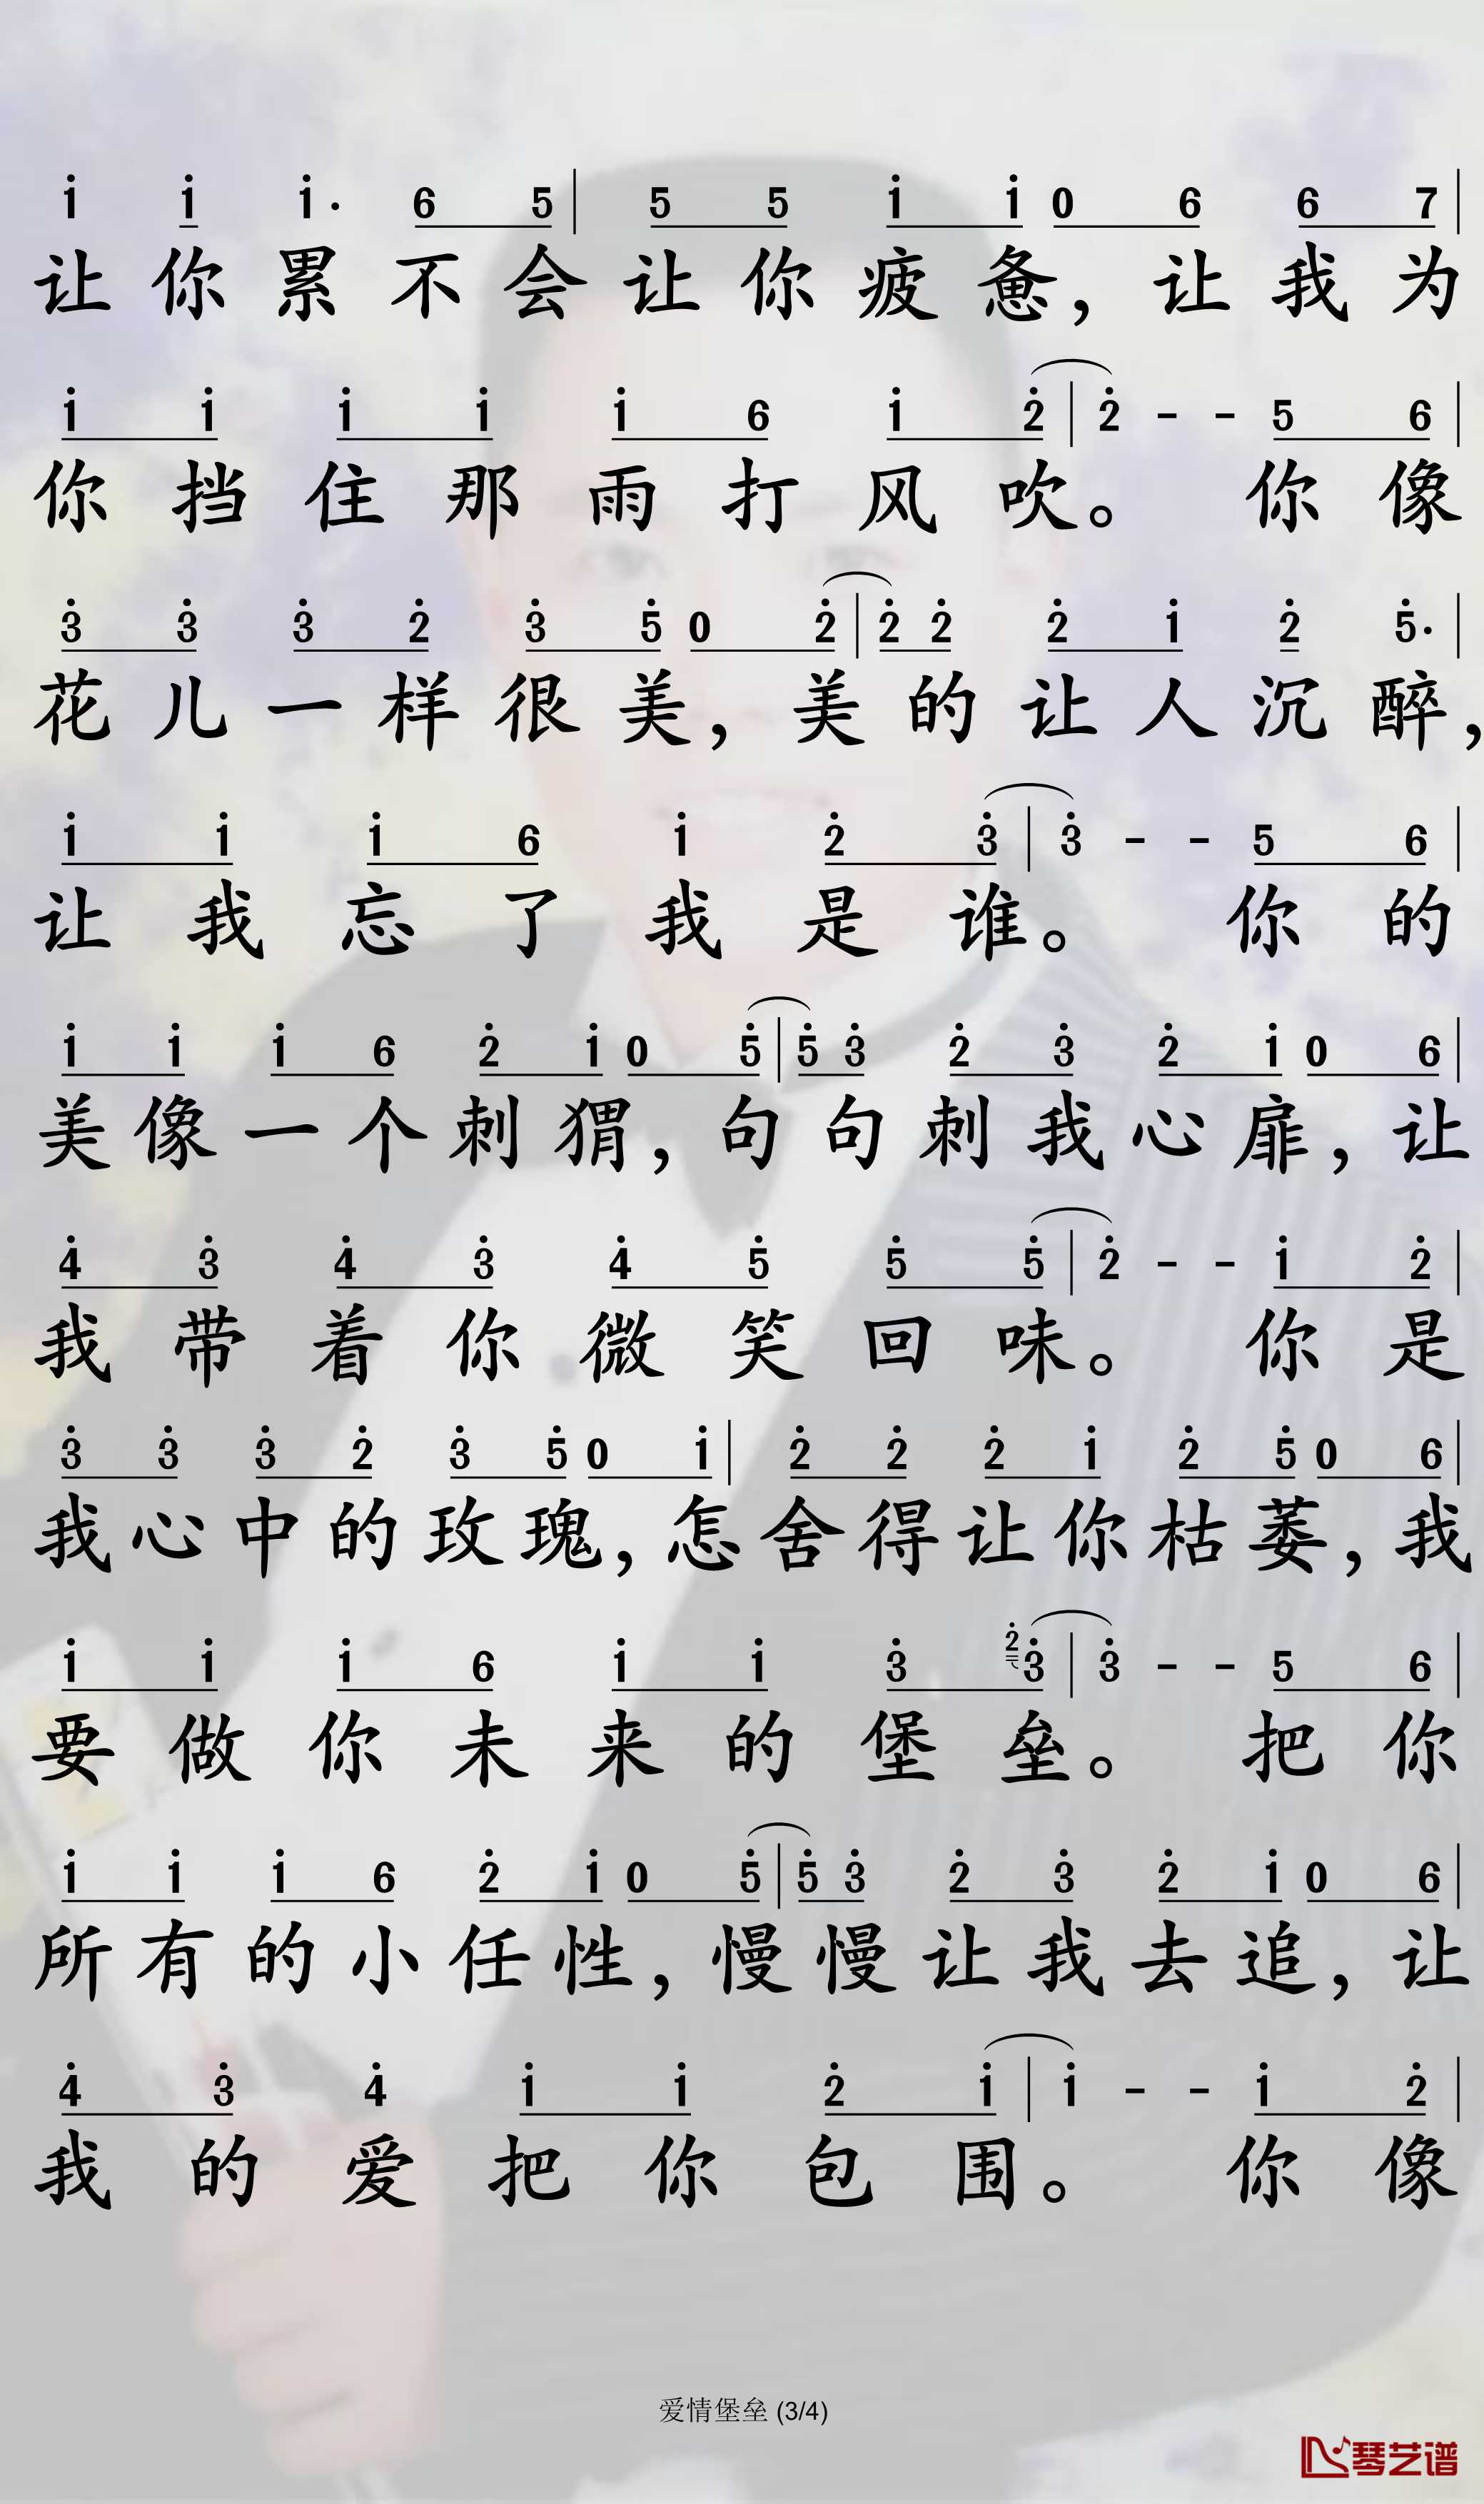 i i i· 6 5 | 5 5 i i 0 6 6 7 |
让你累不会让你疲惫，让我为
i i i i i 6 i 2̇ | 2̇ - - 5 6 |
你挡住那雨打风吹。你像
3̇ 3̇ 3̇ 2̇ 3̇ 5̇ 0 2̇ | 2̇ 2̇ 2̇ i 2̇ 5̇· |
花儿一样很美，美的让人沉醉，
i i i 6 i 2̇ 3̇ | 3̇ - - 5 6 |
让我忘了我是谁。你的
i i i 6 2̇ i 0 5̇ | 5̇ 3̇ 2̇ 3̇ 2̇ i 0 6 |
美像一个刺猬，句句刺我心扉，让
4̇ 3̇ 4̇ 3̇ 4̇ 5̇ 5̇ 5̇ | 2̇ - - i 2̇ |
我带着你微笑回味。你是
3̇ 3̇ 3̇ 2̇ 3̇ 5̇ 0 i | 2̇ 2̇ 2̇ i 2̇ 5̇ 0 6 |
我心中的玫瑰，怎舍得让你枯萎，我
i i i 6 i i 3̇ 2̇ 3̇ | 3̇ - - 5 6 |
要做你未来的堡垒。把你
i i i 6 2̇ i 0 5̇ | 5̇ 3̇ 2̇ 3̇ 2̇ i 0 6 |
所有的小任性，慢慢让我去追，让
4̇ 3̇ 4̇ i i 2̇ i | i - - i 2̇ |
我的爱把你包围。你像
爱情堡垒 (3/4)
琴艺谱